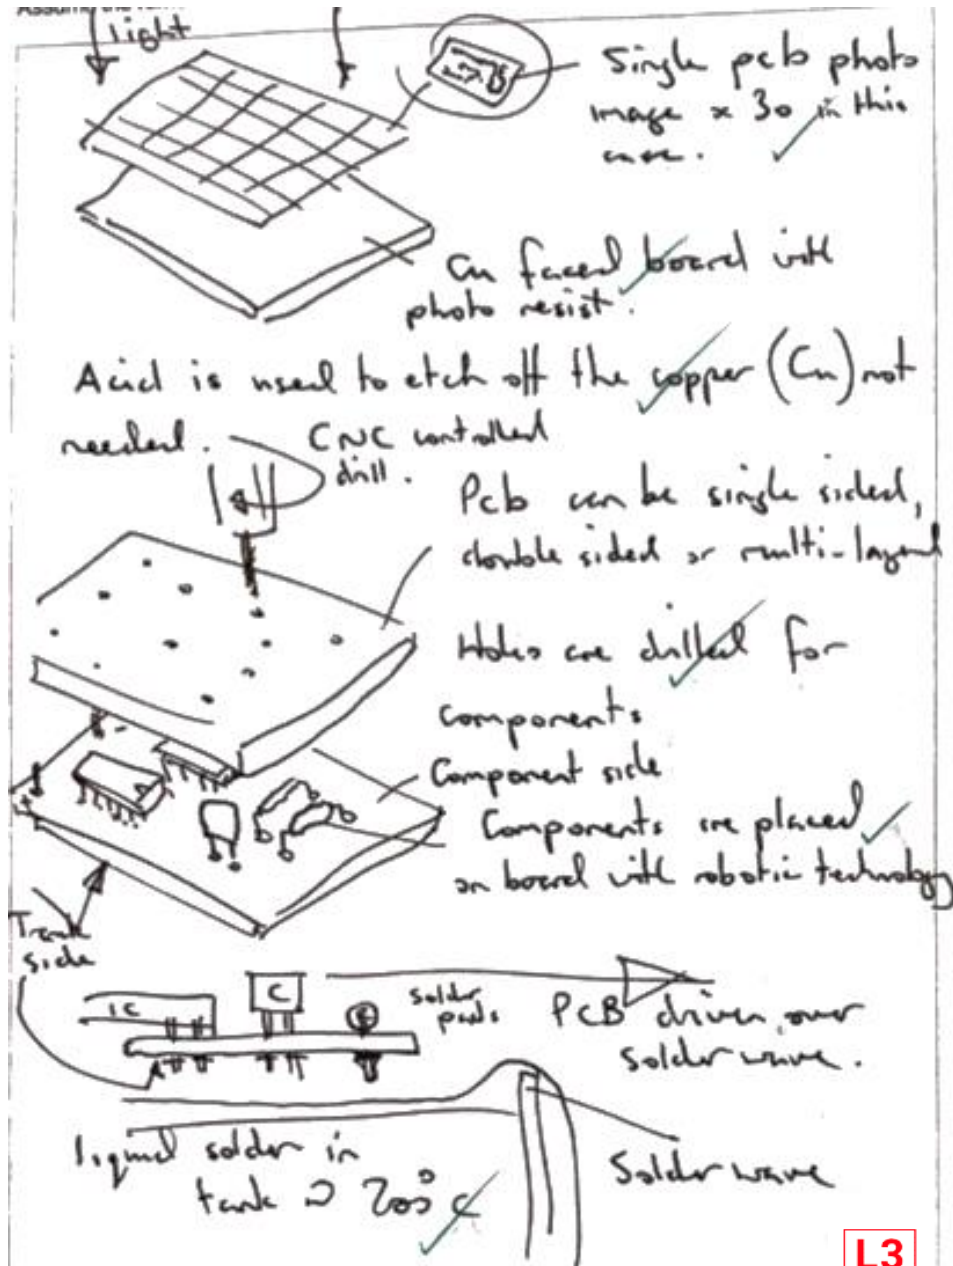 light
Single pcb photo
image x 30 in this
case.
Cu faced board with
photo resist.
Acid is used to etch off the copper (Cu) not
needed.
CNC controlled
drill.
Pcb can be single sided,
double sided or multi-layered
Holes are drilled for
components
Component side
Components are placed
on board with robotic technology
Track
side
IC
C
solder
pads
PCB driven over
solder wave.
liquid solder in
tank 200°C
Solder wave
L3